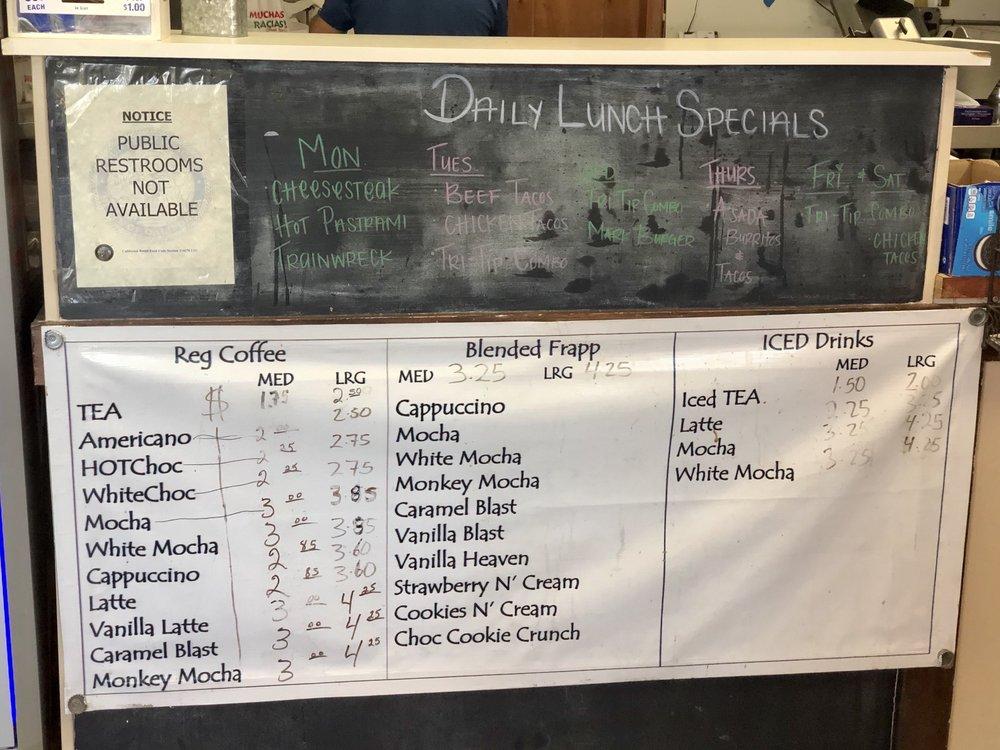 EACH
$1.00
MUCHAS
RACIAS!
NOTICE
PUBLIC
RESTROOMS
NOT
AVAILABLE
DAILY LUNCH SPECIALS
MON.
CHEESESTEAK
HOT PASTRAMI
TRAINWRECK
TUES.
BEEF TACOS
CHICKEN TACOS
TRI-TIP COMBO
TRI TIP COMBO
BURGER
THURS
ASADA
BURRITOS
&
TACOS
FRY & SAT
TRI-TIP COMBO
CHICKEN
TACOS
Reg Coffee
MED LRG
TEA $ 1.75 2.50
Americano 2.00 2.50
HOTChoc 2.25 2.75
WhiteChoc 2.25 2.75
Mocha 3.00 3.85
White Mocha 3.00
Cappuccino 2.85 3.60
Latte 2.85 3.60
Vanilla Latte 3.00 4.25
Caramel Blast 3.00 4.25
Monkey Mocha 3.00 4.25
Blended Frapp
MED 3.25 LRG 4.25
Cappuccino
Mocha
White Mocha
Monkey Mocha
Caramel Blast
Vanilla Blast
Vanilla Heaven
Strawberry N' Cream
Cookies N' Cream
Choc Cookie Crunch
ICED Drinks
MED LRG
Iced TEA 1.50 2.00
Latte 2.25
Mocha 3.25 4.25
White Mocha 3.25 4.25